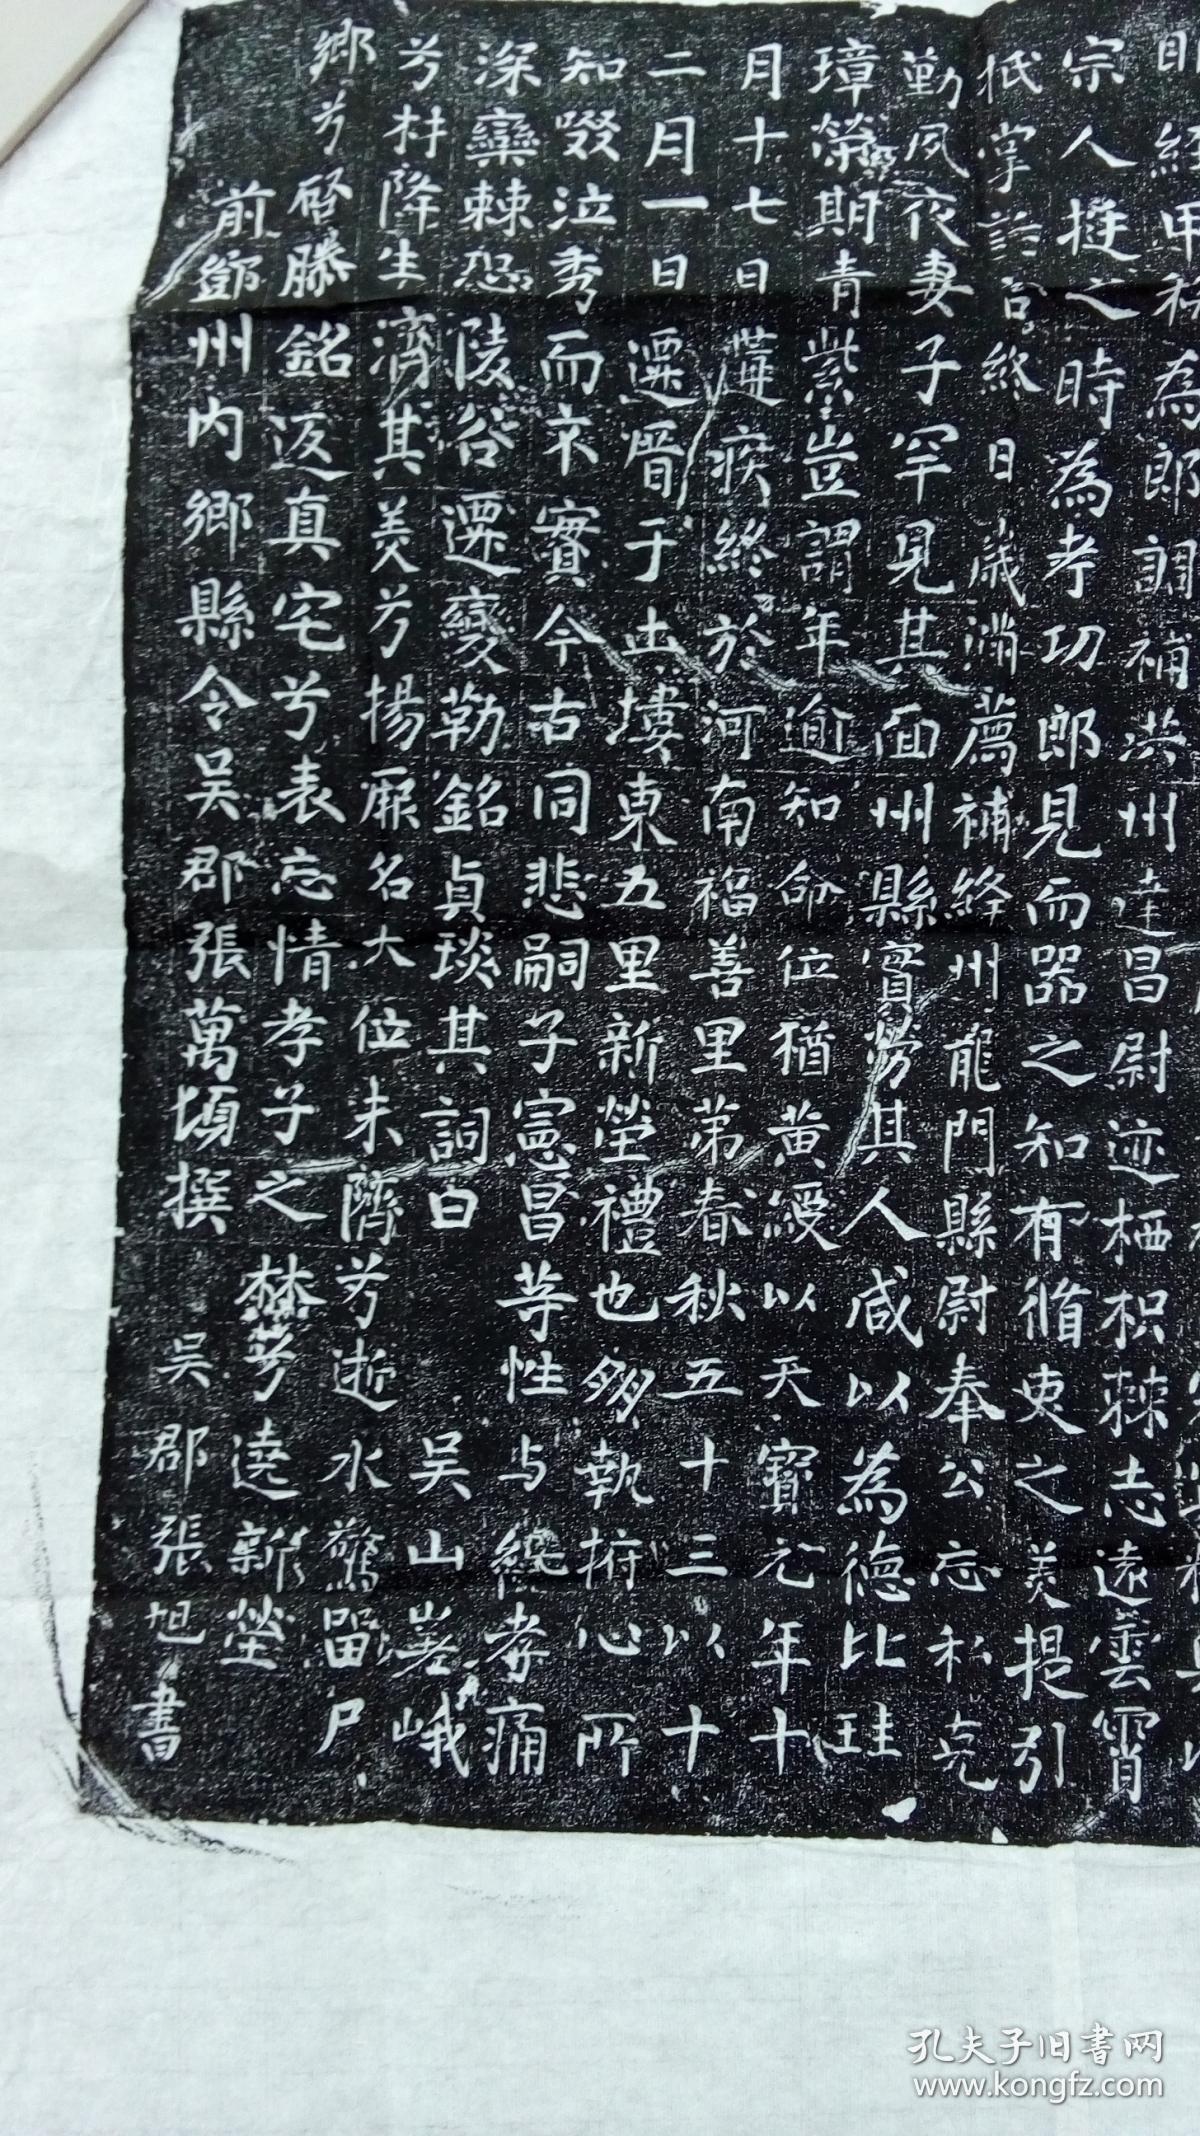 明經甲科為郎調補洪州達昌尉迹栖枳棘志遠雲霄
宗人挺之時為考功郎見而器之知有循吏之美提引
祇掌誥命終日歲滿薦補絳州龍門縣尉奉公忘私克
勤夙夜妻子罕見其面州縣實勞其人咸以為德比珪
璋榮期青紫豈謂年逾知命位猶黃綬以天寶元年十
月十七日遘疾終於河南福善里第春秋五十三以十
二月一日遷厝于土塿東五里新塋禮也夘執捬心所
知啜泣秀而不實今古同悲嗣子憲昌等性与純孝痛
深欒棘恐陵谷遷變勒銘貞琰其詞白　吴山岩峨
兮材降生濟其美兮揚厥名大位未隮兮逝水驚留尸
鄉兮啓滕銘返真宅兮表忘情孝子之楚兮遶新塋
前鄧州内鄉縣令吴郡張萬頃撰　吴郡張旭書
孔夫子旧书网
www.kongfz.com